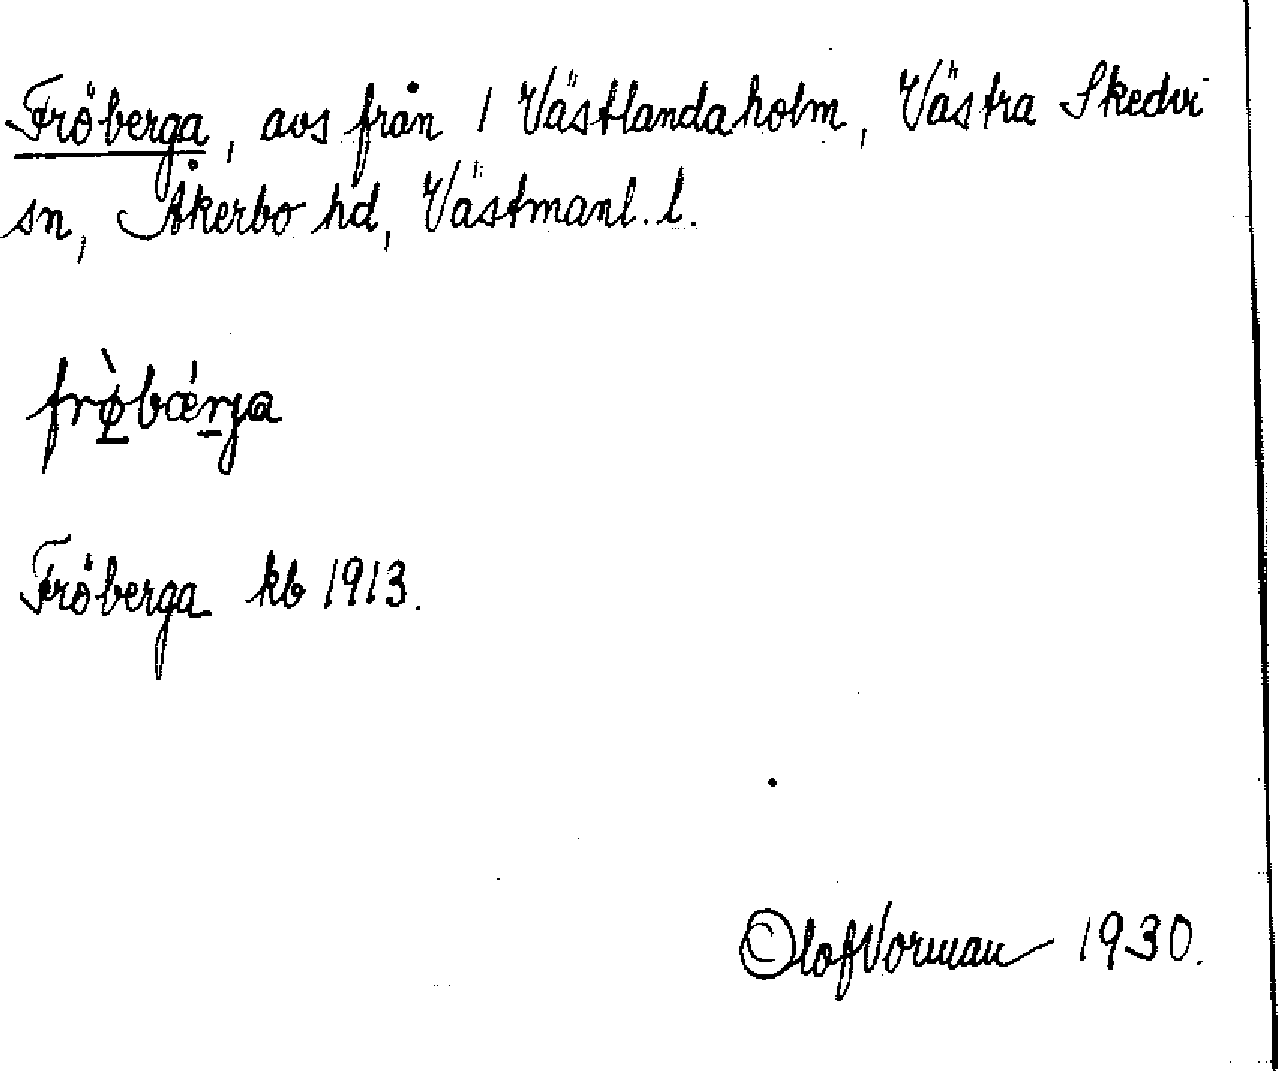 Fröberga, avs från 1 Västlandaholm, Västra Skedvi
sn, Åkerbo hd, Västmanl. l.
frø̀bǽrja
Fröberga kb 1913.
Olof Vorman 1930.